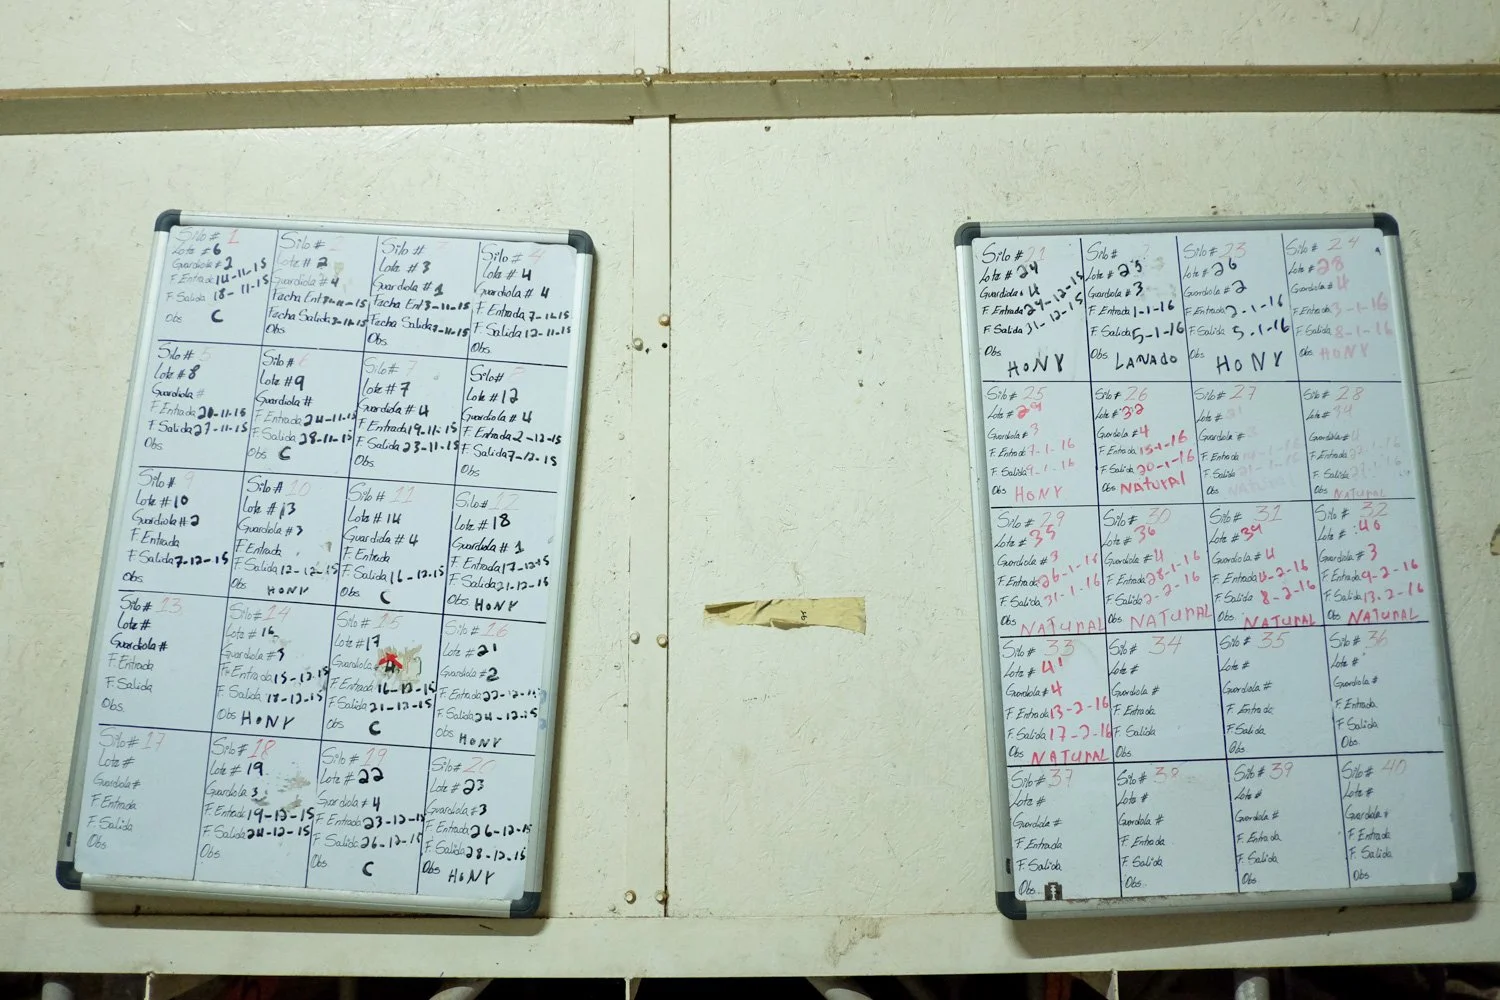 Silo # 1
Lote # 6
Guardiola # 2
F. Entrada 14-11-15
F. Salida 18-11-15
Obs C
Silo # 2
Lote # 2
Guardiola # 4
Fecha Ent
Fecha Salida
Obs
Silo # 3
Lote # 3
Guardiola # 1
Fecha Ent 3-11-15
Fecha Salida
Obs
Silo # 4
Lote # 4
Guardiola # 4
F. Entrada 7-11-15
F. Salida 12-11-15
Obs.
Silo # 5
Lote # 8
Guardiola #
F. Entrada 20-11-15
F. Salida 27-11-15
Obs
Silo # 6
Lote # 9
Guardiola #
F. Entrada 24-11-15
F. Salida 28-11-15
Obs C
Silo # 7
Lote # 7
Guardiola # 4
F. Entrada 19-11-15
F. Salida 23-11-15
Obs.
Silo #
Lote # 12
Guardiola # 4
F. Entrada 2-12-15
F. Salida 7-12-15
Obs
Silo # 9
Lote # 10
Guardiola # 2
F. Entrada
F. Salida 7-12-15
Obs
Silo # 10
Lote # 13
Guardiola # 3
F. Entrada
F. Salida 12-12-15
HONY
Silo # 11
Lote # 14
Guardiola # 4
F. Entrada
F. Salida 16-12-15
Obs C
Silo # 12
Lote # 18
Guardiola # 1
F. Entrada 17-12-15
F. Salida 21-12-15
Obs HONY
Silo # 13
Lote #
Guardiola #
F. Entrada
F. Salida
Obs.
Silo # 14
Lote # 16
Guardiola # 3
F. Entrada 15-12-15
F. Salida 18-12-15
Obs HONY
Silo # 15
Lote # 17
Guardiola # 4
F. Entrada 16-12-15
F. Salida 21-12-15
Obs C
Silo # 16
Lote # 21
Guardiola # 2
F. Entrada 22-12-15
F. Salida 24-12-15
Obs HONY
Silo # 17
Lote #
Guardiola #
F. Entrada
F. Salida
Obs
Silo # 18
Lote # 19
Guardiola 3
F. Entrada 19-12-15
F. Salida 24-12-15
Obs.
Silo # 19
Lote # 22
Guardiola # 4
F. Entrada 23-12-15
F. Salida 26-12-15
Obs C
Silo # 20
Lote # 23
Guardiola # 3
F. Entrada 26-12-15
F. Salida 28-12-15
Obs HONY
Silo # 21
Lote # 24
Guardiola # 4
F. Entrada 29-12-15
F. Salida 31-12-15
Obs HONY
Silo #
Lote # 25
Guardiola # 3
F. Entrada 1-1-16
F. Salida 5-1-16
Obs LAVADO
Silo # 23
Lote # 26
Guardiola # 2
F. Entrada 2-1-16
F. Salida 5-1-16
Obs HONY
Silo # 24
Lote # 28
Guardiola # 4
F. Entrada 3-1-16
F. Salida 8-1-16
Obs HONY
Silo # 25
Lote # 29
Guardiola # 3
F. Entrada 7-1-16
F. Salida 9-1-16
Obs HONY
Silo # 26
Lote # 32
Guardiola # 4
F. Entrada 15-1-16
F. Salida 20-1-16
Obs NATURAL
Silo # 27
Lote #
Guardiola # 3
F. Entrada
F. Salida
Obs NATURAL
Silo # 28
Lote # 34
Guardiola # 4
F. Entrada
F. Salida
Obs. NATURAL
Silo # 29
Lote # 35
Guardiola # 3
F. Entrada 26-1-16
F. Salida 31-1-16
Obs NATURAL
Silo # 30
Lote # 36
Guardiola # 4
F. Entrada 28-1-16
F. Salida 2-2-16
Obs NATURAL
Silo # 31
Lote # 39
Guardiola # 4
F. Entrada
F. Salida 8-2-16
Obs NATURAL
Silo # 32
Lote # 40
Guardiola # 3
F. Entrada 9-2-16
F. Salida 13-2-16
Obs NATURAL
Silo # 33
Lote # 41
Guardiola # 4
F. Entrada 13-2-16
F. Salida 17-2-16
Obs NATURAL
Silo # 34
Lote #
Guardiola #
F. Entrada
F. Salida
Obs.
Silo # 35
Lote #
Guardiola #
F. Entrada
F. Salida
Obs
Silo # 36
Lote #
Guardiola #
F. Entrada
F. Salida
Obs.
Silo # 37
Lote #
Guardiola #
F. Entrada
F. Salida
Obs.
Silo # 38
Lote #
Guardiola #
F. Entrada
F. Salida
Obs.
Silo # 39
Lote #
Guardiola #
F. Entrada
F. Salida
Obs
Silo # 40
Lote #
Guardiola #
F. Entrada
F. Salida
Obs